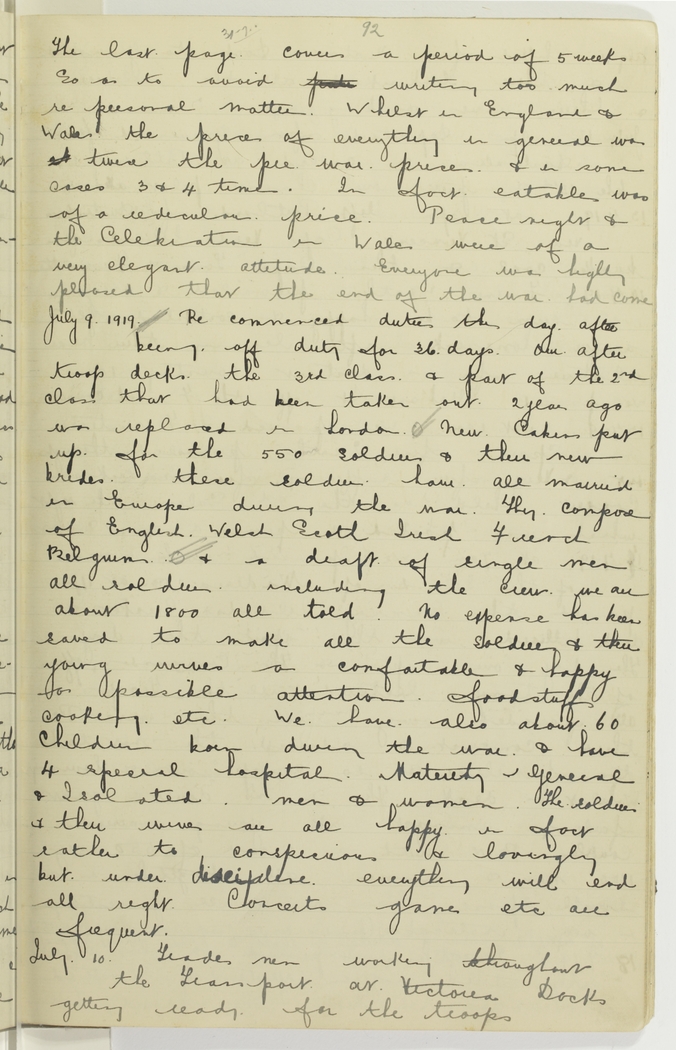 92
The last page. covers a period of 5 weeks
So as to avoid writing too much
re personal matter. Whilst in England &
Wales the prices of everything in general was
twice the pre war prices. & in some
cases 3 & 4 time. In fact. eatables was
of a rediculous price. Peace night &
the Celebration in Wales were of a
very elegant. attitude. Everyone was highly
pleased that the end of the war. had come
July 9. 1919. Re commenced duties this day. after
being. off duty for 36. days. Our after
troop decks. the 3rd class. & part of the 2nd
class that had been taken out. 2 years ago
was replaced in London. New. Cabins put
up. for the 550 soldiers & their new
brides. these soldiers have. all married
in Europe during the war. They. compose
of English. Welsh Scotch Irish French
Belgium. & a draft of single men
all soldiers. including the crew. we are
about 1800 all told. No expense has been
saved to make all the soldiers & their
young wives as comfortable & happy
as possible attention. foodstuff
cooking. etc. We. have. also about. 60
Children born during the war. & have
4 special hospital. Maternity & General
& Isolated. men & women. The soldiers
& their wives are all happy. in fact
rather to conspicious & lovingly
but. under discipline. everything will end
all right. Concerts games etc are
frequent.
July. 10. Trades men working throughout
the Transport. at Victoria Docks
getting ready. for the troops